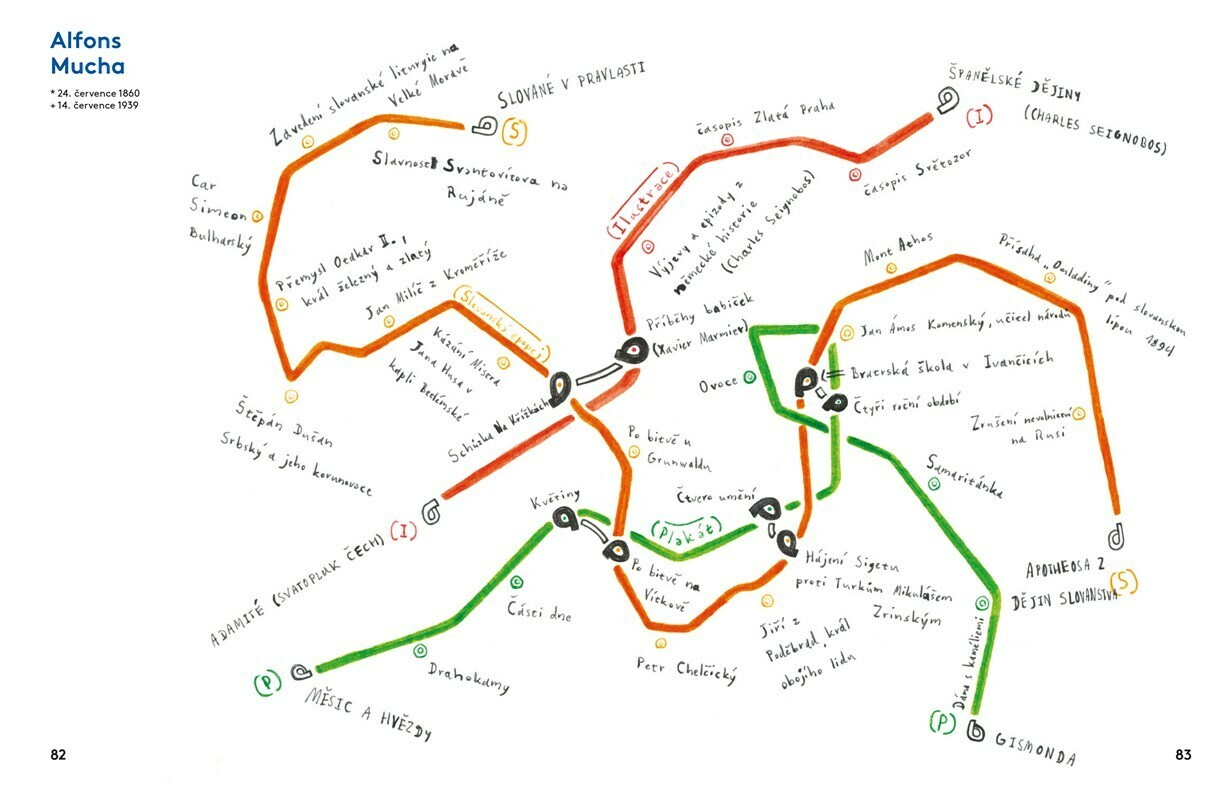 Alfons
Mucha
* 24. července 1860
+ 14. července 1939
Zavedení slovanské liturgie na
Velké Moravě
SLOVANÉ V PRAVLASTI
(S)
Slavnost Svantovítova na
Rujáně
Car
Simeon
Bulharský
Přemysl Otakar II.,
král železný a zlatý
Jan Milíč z Kroměříže
(Slovanský epopej)
Kázání Mistra
Jana Husa v
kapli Betlémské
Štěpán Dušan
Srbský a jeho korunovace
Schůzka Na Křížkách
ADAMITÉ (SVATOPLUK ČECH)
(I)
(Ilustrace)
časopis Zlatá Praha
ŠPANĚLSKÉ DĚJINY
(CHARLES SEIGNOBOS)
(I)
časopis Světozor
Výjevy a epizody z
německé historie
(Charles Seignobos)
Příběhy babiček
(Xavier Marmier)
Mont Athos
Přísaha „Omladiny" pod slovanskou
lípou 1894
Jan Ámos Komenský, učitel národů
Bratrská škola v Ivančicích
Čtyři roční období
Ovoce
Zrušení nevolnictví
na Rusi
Po bitvě u
Grunwaldu
Samaritánka
Květiny
Čtvero umění
(Plakát)
Po bitvě na
Vítkově
Hájení Sigetu
proti Turkům Mikulášem
Zrinským
APOTHEOSA Z
DĚJIN SLOVANSTVA
(S)
Části dne
Jiří z
Poděbrad, král
obojího lidu
Petr Chelčický
Drahokamy
(P)
MĚSÍC A HVĚZDY
Dáma s kaméliemi
(P)
GISMONDA
82
83